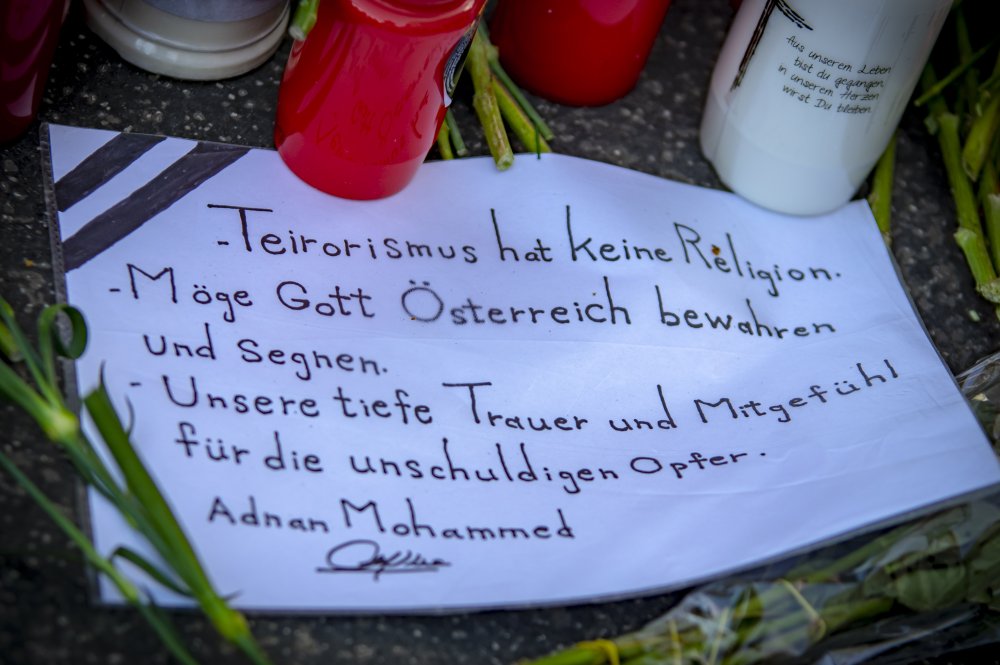 Aus unserem Leben
bist du gegangen,
in unserem Herzen
wirst Du bleiben.
-Teirorismus hat keine Religion.
-Möge Gott Österreich bewahren
und segnen.
- Unsere tiefe Trauer und Mitgefühl
für die unschuldigen Opfer.
Adnan Mohammed